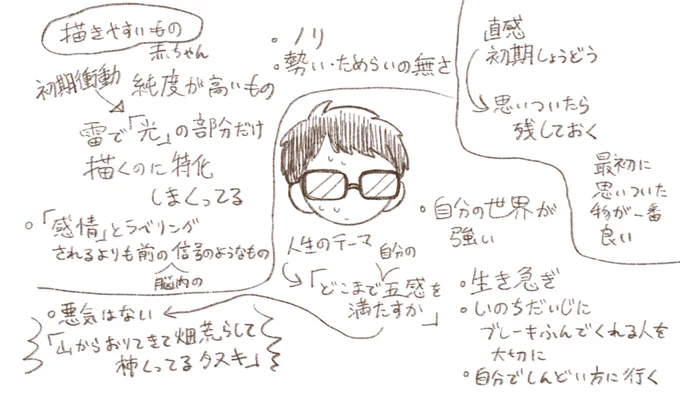 描きやすいもの
赤ちゃん
初期衝動
純度が高いもの
雷で「光」の部分だけ
描くのに特化
しまくってる
。「感情」とラベリング
されるよりも前の信号のようなもの
脳内の
。ノリ
。勢い・ためらいの無さ
直感
初期しょうどう
思いついたら
残しておく
最初に
思いついた
物が一番
良い
。自分の世界が
強い
人生のテーマ
自分の
「どこまで五感を
満たすか」
。悪気はない
「山からおりてきて畑荒らして
柿くってるタヌキ」
。生き急ぎ
。いのちだいじに
ブレーキふんでくれる人を
大切に
。自分でしんどい方に行く